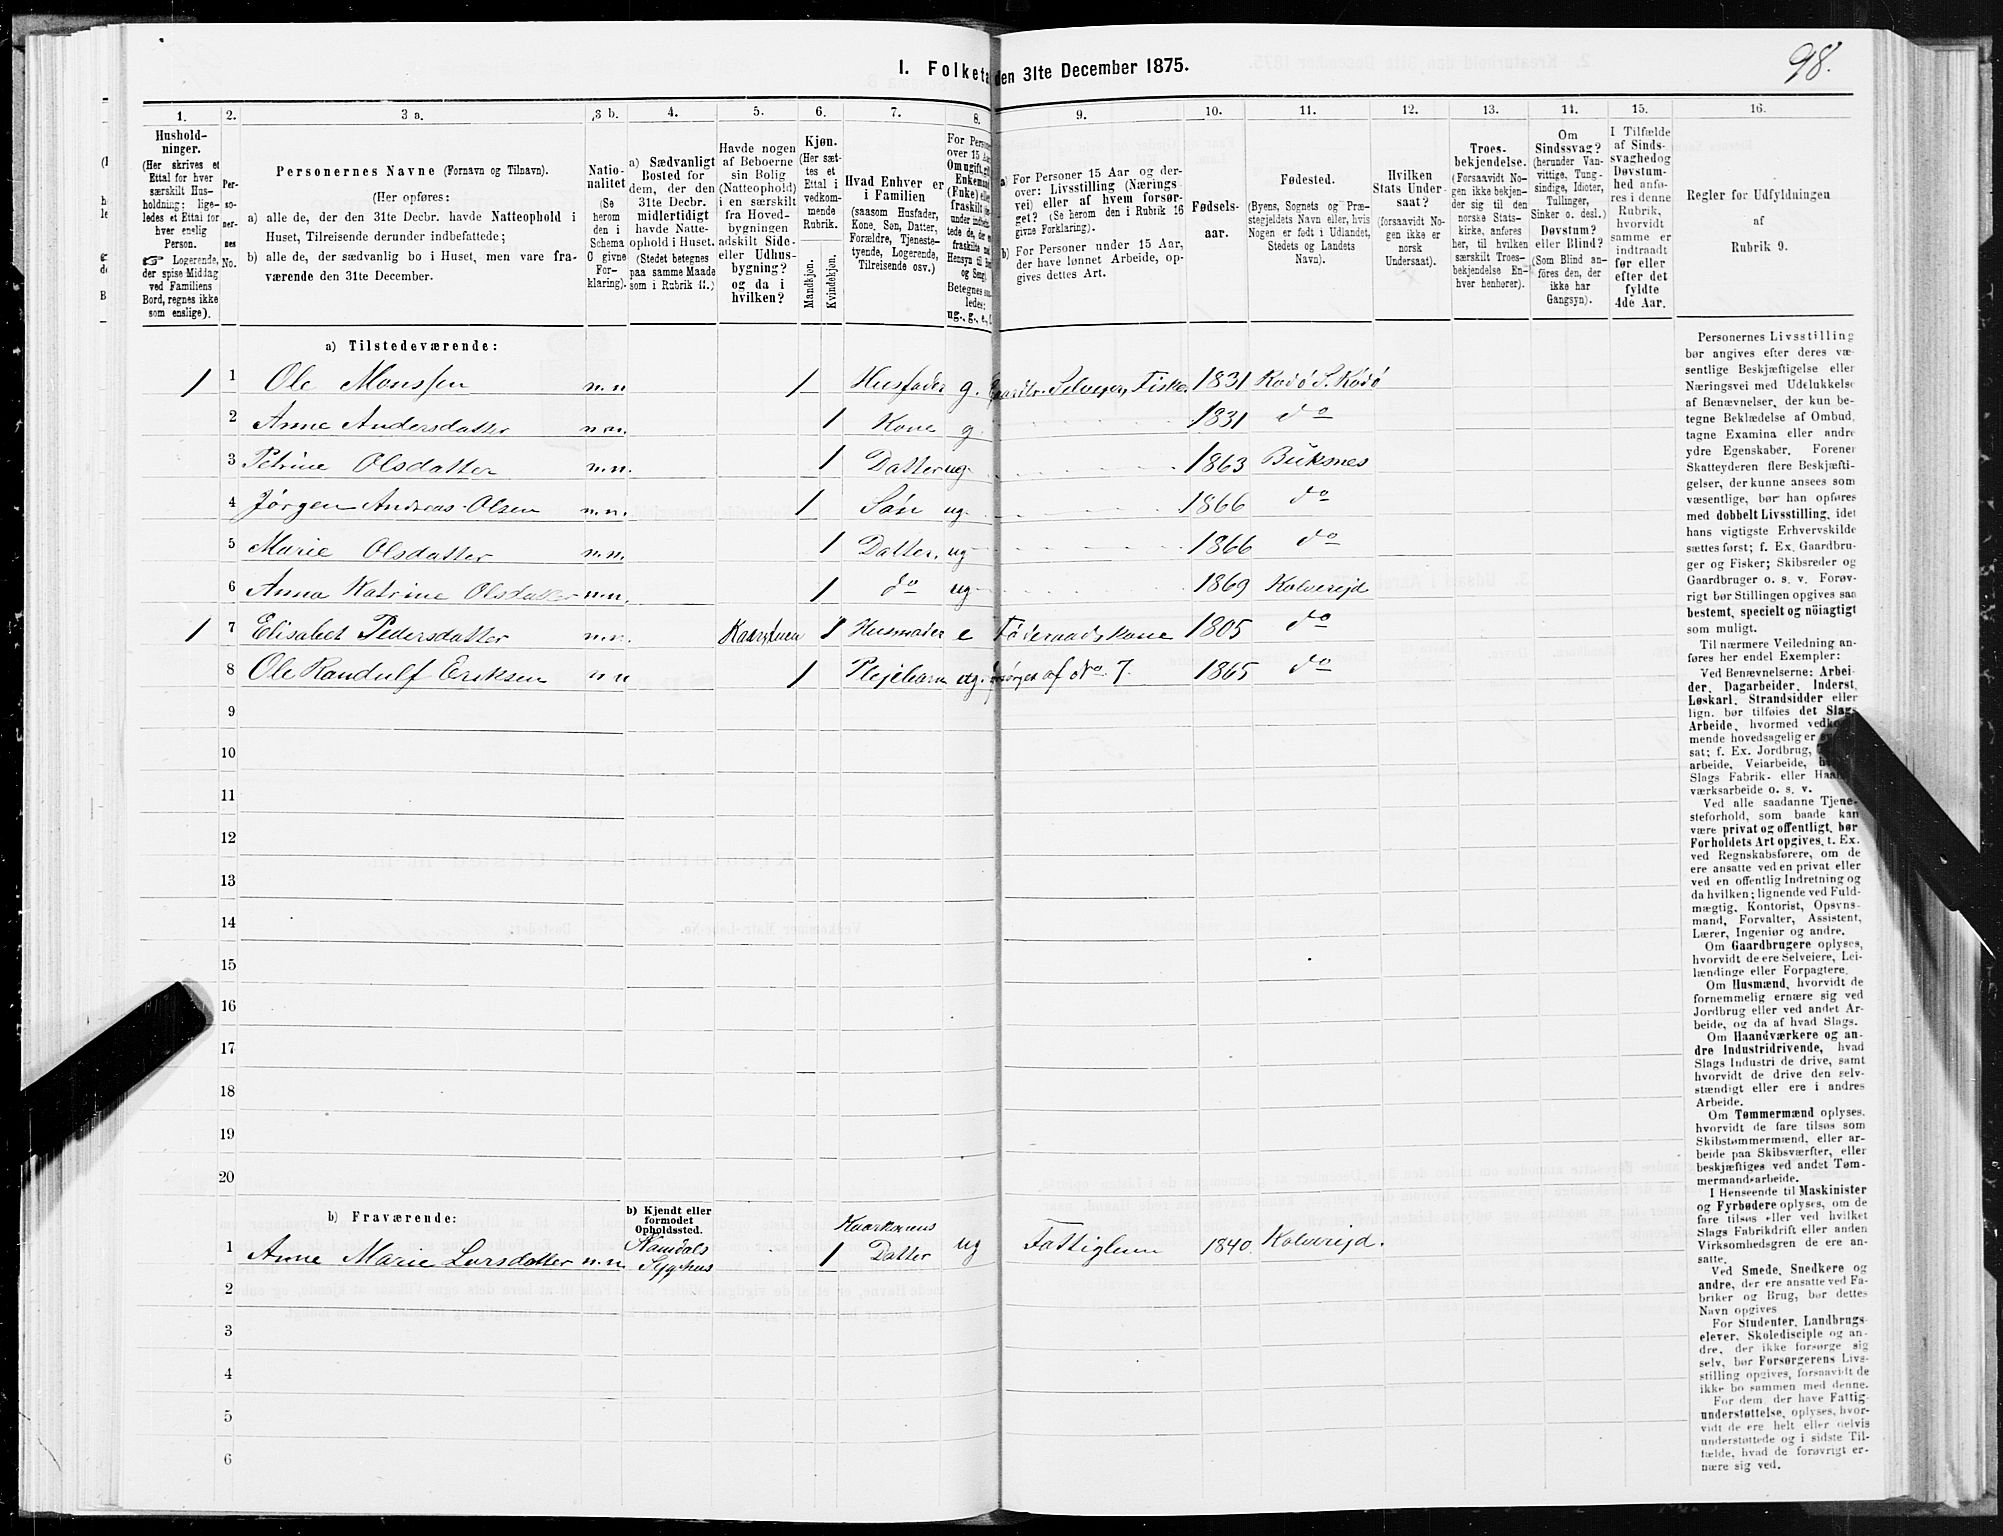 98.
I. Folketæ
den 31te December 1875.
1.
Hushold-
ninger.
(Her skrives et
Ettal for hver
særskilt Hus-
holdning; lige-
ledes et Ettal for
hver enslig
Person.
☞ Logerende,
der spise Middag
ved Familiens
Bord, regnes ikke
som enslige).
2.
Per-
so-
ner-
nes
No.
3 a.
Personernes Navne (Fornavn og Tilnavn).
(Her opføres:
a) alle de, der den 31te Decbr. havde Natteophold i
Huset, Tilreisende derunder indbefattede;
b) alle de, der sædvanlig bo i Huset, men vare fra-
værende den 31te December.
3 b.
Natio-
nalitet
(Se
herom
den i
Schema
O givne
For-
klaring).
4.
a) Sædvanligt
Bosted for
dem, der den
31te Decbr.
midlertidigt
havde Natte-
ophold i Huset.
(Stedet betegnes
paa samme Maade
som i Rubrik 11.)
5.
Havde nogen
af Beboerne
sin Bolig
(Natteophold)
i en særskilt
fra Hoved-
bygningen
adskilt Side-
eller Udhus-
bygning?
og da i
hvilken?
6.
Kjøn.
(Her sæt-
tes et
Ettal i
vedkom-
mende
Rubrik.
Mandkjøn.
Kvindekjøn.
7.
Hvad Enhver er
i Familien
(saasom Husfader,
Kone, Søn, Datter,
Forældre, Tjeneste-
tyende, Logerende,
Tilreisende osv.)
8.
For Persone
over 15 Aar
Betegnes saa-
ledes:
ug., g., e., f.
9.
a) For Personer 15 Aar og der-
over: Livsstilling (Nærings-
vei) eller af hvem forsør-
get? (Se herom den i Rubrik 16
givne Forklaring).
b) For Personer under 15 Aar,
der have lønnet Arbeide, op-
gives dettes Art.
10.
Fødsels-
aar.
11.
Fødested.
(Byens, Sognets og Præ-
stegjeldets Navn eller, hvis
Nogen er født i Udlandet,
Stedets og Landets
Navn).
12.
Hvilken
Stats Under-
saat?
(forsaavidt No-
gen ikke er
norsk
Undersaat).
13.
Troes-
bekjendelse.
(Forsaavidt No-
gen ikke bekjen-
der sig til den
norske Stats-
kirke, anføres
her, til hvilken
særskilt Troes-
bekjendelse En-
hver henhører).
14.
Om
Sindssvag?
(herunder Van-
vittige, Tung-
sindige, Idioter,
Tullinger,
Sinker o. desl.)
Døvstum?
eller Blind?
(Som Blind an-
føres den, der
ikke har
Gangsyn).
15.
I Tilfælde
af Sinds-
svaghed og
Døvstum-
hed anfø-
res i denne
Rubrik,
hvorvidt
samme er
indtraadt
før eller
efter det
fyldte
4de Aar.
16.
Regler før Udfyldningen
af
Rubrik 9.
a) Tilstedeværende:
1 1 Ole Monssen n.n 1 Husfader g. Gaardbr. Selveyer, Fisker 1831 Rødø S. Rødø
2 Anne Andersdatter n.n. 1 Kone g 1831 do
3 Petrine Olsdatter n.n. 1 Datter ug 1863 Buksnes
4 Jørgen Andreas Olsen n.n. 1 Søn ug 1866 do
5 Marie Olsdatter n.n. 1 Datter. ug 1866 do
6 Anna Katrine Olsdatter n.n. 1 do ug 1869 Kolvereid
1 7 Elisabet Pedersdatter n.n. Kaarstuen 1 Husmoder e Føderaadskone 1805 do
8 Ole Randulf Eriksen n n 1 Plejebarn ug. forsørget af No. 7. 1865 do
9
10
11
12
13
14
15
16
17
18
19
20
b) Fraværende:
b) Kjendt eller
formodet
Opholdssted.
1 Anne Marie Larsdatter n.n. Namdals Sygehus 1 Kaarkonens Datter ug Fattiglem 1840. Kolvereid.
2
3
4
5
6
Personernes Livsstilling
bør angives efter deres væ-
sentlige Beskjæftigelse eller
Næringsvei med Udelukkelse
af Benævnelser, der kun be-
tegne Beklædelse af Ombud,
tagne Examina eller andre
ydre Egenskaber. Forener
Skatteyderen flere Beskjæfti-
gelser, der kunne ansees som
væsentlige, bør han opføres
med dobbelt Livsstilling, idet
hans vigtigste Erhvervskilde
sættes først; f. Ex. Gaardbru-
ger og Fisker; Skibsreder og
Gaardbruger o. s. v. Forøv-
rigt bør Stillingen opgives saa
bestemt, specielt og nöiagtigt
som muligt.
Til nærmere Veiledning an-
føres her endel Exempler:
Ved Benævnelserne: Arbei-
der, Dagarbeider, Inderst,
Løskarl, Strandsidder eller
lign. bør tilføies det Slags
Arbeide, hvormed vedkom-
mende hovedsagelig er
sat; f. Ex. Jordbrug,
arbeide, Veiarbeide,
Slags Fabrik- eller Haand-
værksarbeide o. s. v.
Ved alle saadanne Tjene-
steforhold, som baade kan
være privat og offentligt, bør
Forholdets Art opgives, f. Ex.
ved Regnskabsførere, om de
ere ansatte ved en privat eller
ved en offentlig Indretning og
da hvilken; lignende ved Fuld-
mægtig, Kontorist, Opsyns-
mand, Forvalter, Assistent,
Lærer, Ingeniør og andre.
Om Gaardbrugere oplyses,
hvorvidt de ere Selveiere, Lei-
lændinge eller Forpagtere.
Om Husmænd, hvorvidt de
fornemmelig ernære sig ved
Jordbrug eller ved andet Ar-
beide, og da af hvad Slags.
Om Haandværkere og an-
dre Industridrivende, hvad
Slags Industri de drive, samt
hvorvidt de drive den selv-
stændigt eller ere i andres
Arbeide.
Om Tømmermænd oplyses.
hvorvidt de fare tilsøs som
Skibstømmermænd, eller ar-
beide paa Skibsværfter, eller
beskjæftiges ved andet Tøm-
mermandsarbeide.
I Henseende til Maskinister
og Fyrbødere oplyses, om de
fare tilsøs eller ved hvilket
Slags Fabrikdrift eller anden
Virksomhedsgren de ere an-
satte.
Ved Smede, Snedkere og
andre, der ere ansatte ved Fa-
briker og Brug, bør dettes
Navn opgives
For Studenter, Landbrugs-
elever, Skoledisciple og an-
dre, der ikke forsørge sig
selv, bør Forsørgerens Livs-
stilling opgives, forsaavidt de
ikke bo sammen med denne.
For dem, der have Fattig-
understøttelse, oplyses, hvor-
vidt de ere helt eller delvis
understøttede og i sidste Til-
fælde, hvad de forøvrigt er-
nære sig ved.